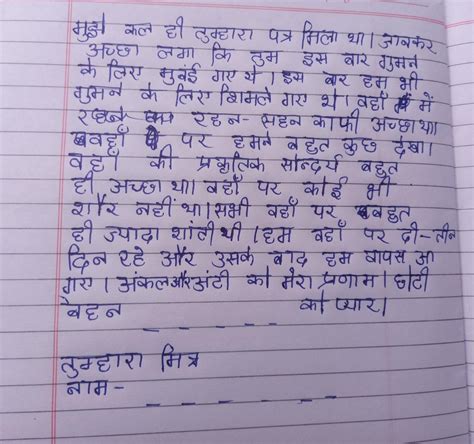 मुझे कल ही तुम्हारा पत्र मिला था। जानकर
अच्छा लगा कि तुम इस बार घुमने
के लिए मुंबई गए थे। इस बार हम भी
घुमने के लिए शिमले गए थे। वहाँ में
रहने का रहन-सहन काफी अच्छा था।
वहाँ पर हमने बहुत कुछ देखा।
वहाँ की प्रकृतिक सौन्दर्य बहुत
ही अच्छा था। वहाँ पर कोई भी
शोर नहीं था। सभी वहाँ पर बहुत
ही ज्यादा शांती थी। हम वहाँ पर दो-तीन
दिन रहे और उसके बाद हम वापस आ
गए। अंकल और अंटी को मेरा प्रणाम। छोटी
बहन _ _ _ _ _ को प्यार।
तुम्हारा मित्र
नाम- _ _ _ _ _ _